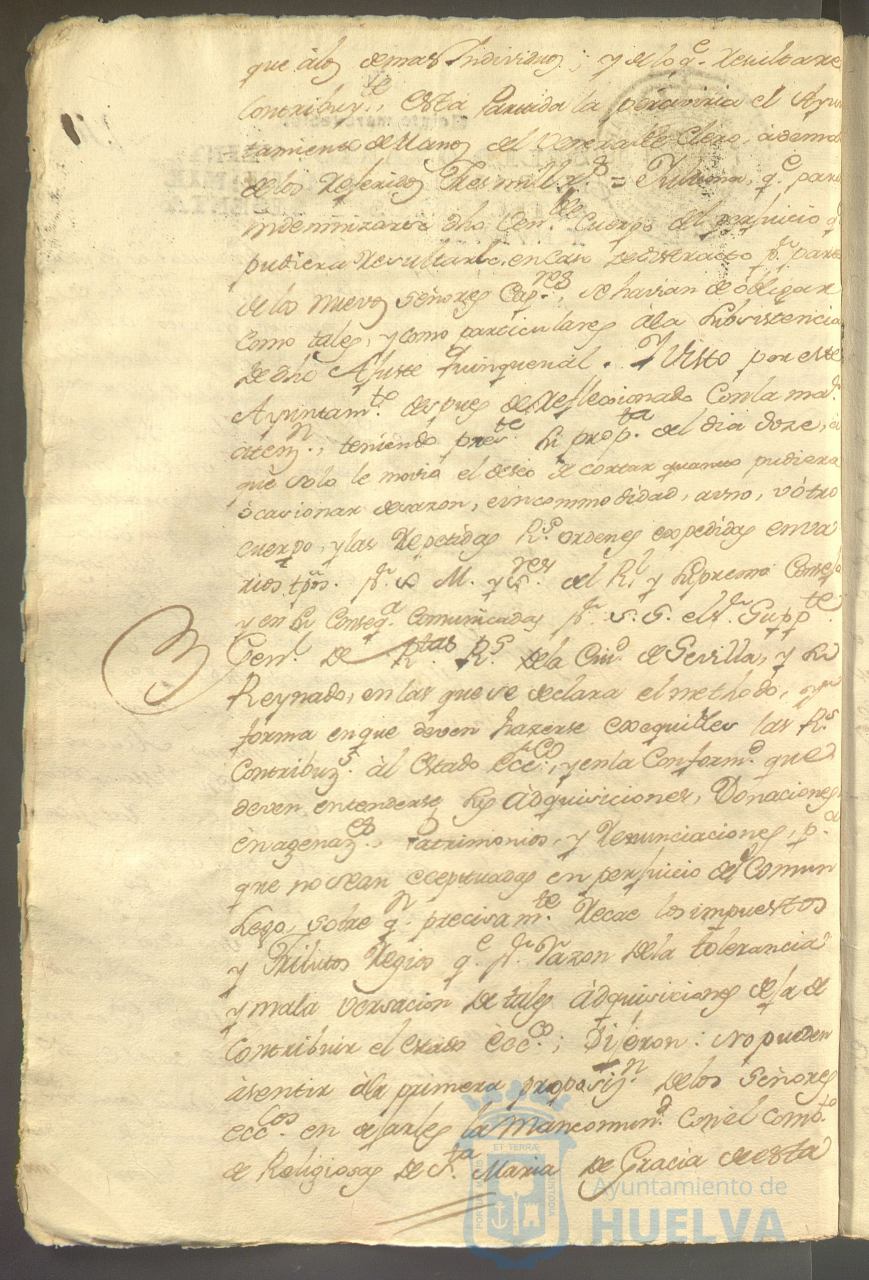 que àlos demas Individuos; y de lo q.e Resultare
Contribuy.te, esta Partida la persiviria el Ayun
tamiento de Manos del Venerable Clero, àdemas
de los Referidos Tres mill r.s = Iultima, q.e para
indemnizarse dho Ven.ble Cuerpo del perjuicio q.
pudiera Resultarle, en caso de distracto p.r parte
de los nuevos Señores Cap.res, se havian de òbligar
como tales, y como particulares àla subsistencia
de dho Ajuste quinquenal. Ivisto por este
Ayuntam.to despues de Reflecsionado Con la ma.r
aten.n, teniendo pres.te su prop.ta del dia doze, à
que solo le movia el deseo de cortar quanto pudiera
òcasionar desazon, e incommodidad, à uno, ù òtro
cuerpo, y las Repetidas R.s ordenes expedidas en va
rios tpõs. p.r S. M. y S.res del R.l y Supremo Consejo
y en su Conseq.a Comunicadas p.r S. S. el S.r Supp.te
Gen.l de R.tas R.s de la Ciu.d de Sevilla, y su
Reynado, en las que se declara el methodo, y
forma en que deven hazerse exequibles las R.s
Contribuz.s àl Estado Ecc.co, y en la Conform.d que
deven entenderse sus àdquisiciones, Donaciones
ènagenaz.es, Patrimonios, y Renunciaciones, p.a
que no sean exceptuadas en perjuicio del Comun
Lego, sobre q.n precisam.te Recae los impuestos
y Tributos Regios q.e p.r Razon de la tolerancia
y mala versacion de tales àdquisiciones deja de
Contribuir el Estado Ècc.co; Dijeron: no pueden
àsentir àla primera proposiz.n de los Señores
ecc.cos en dejarles la Mancomun.d con el comb.to
de Religiosas de S.ta Maria de Gracia de esta
POR
ET TERRAE
CUSTODIA
Ayuntamiento de
HUELVA